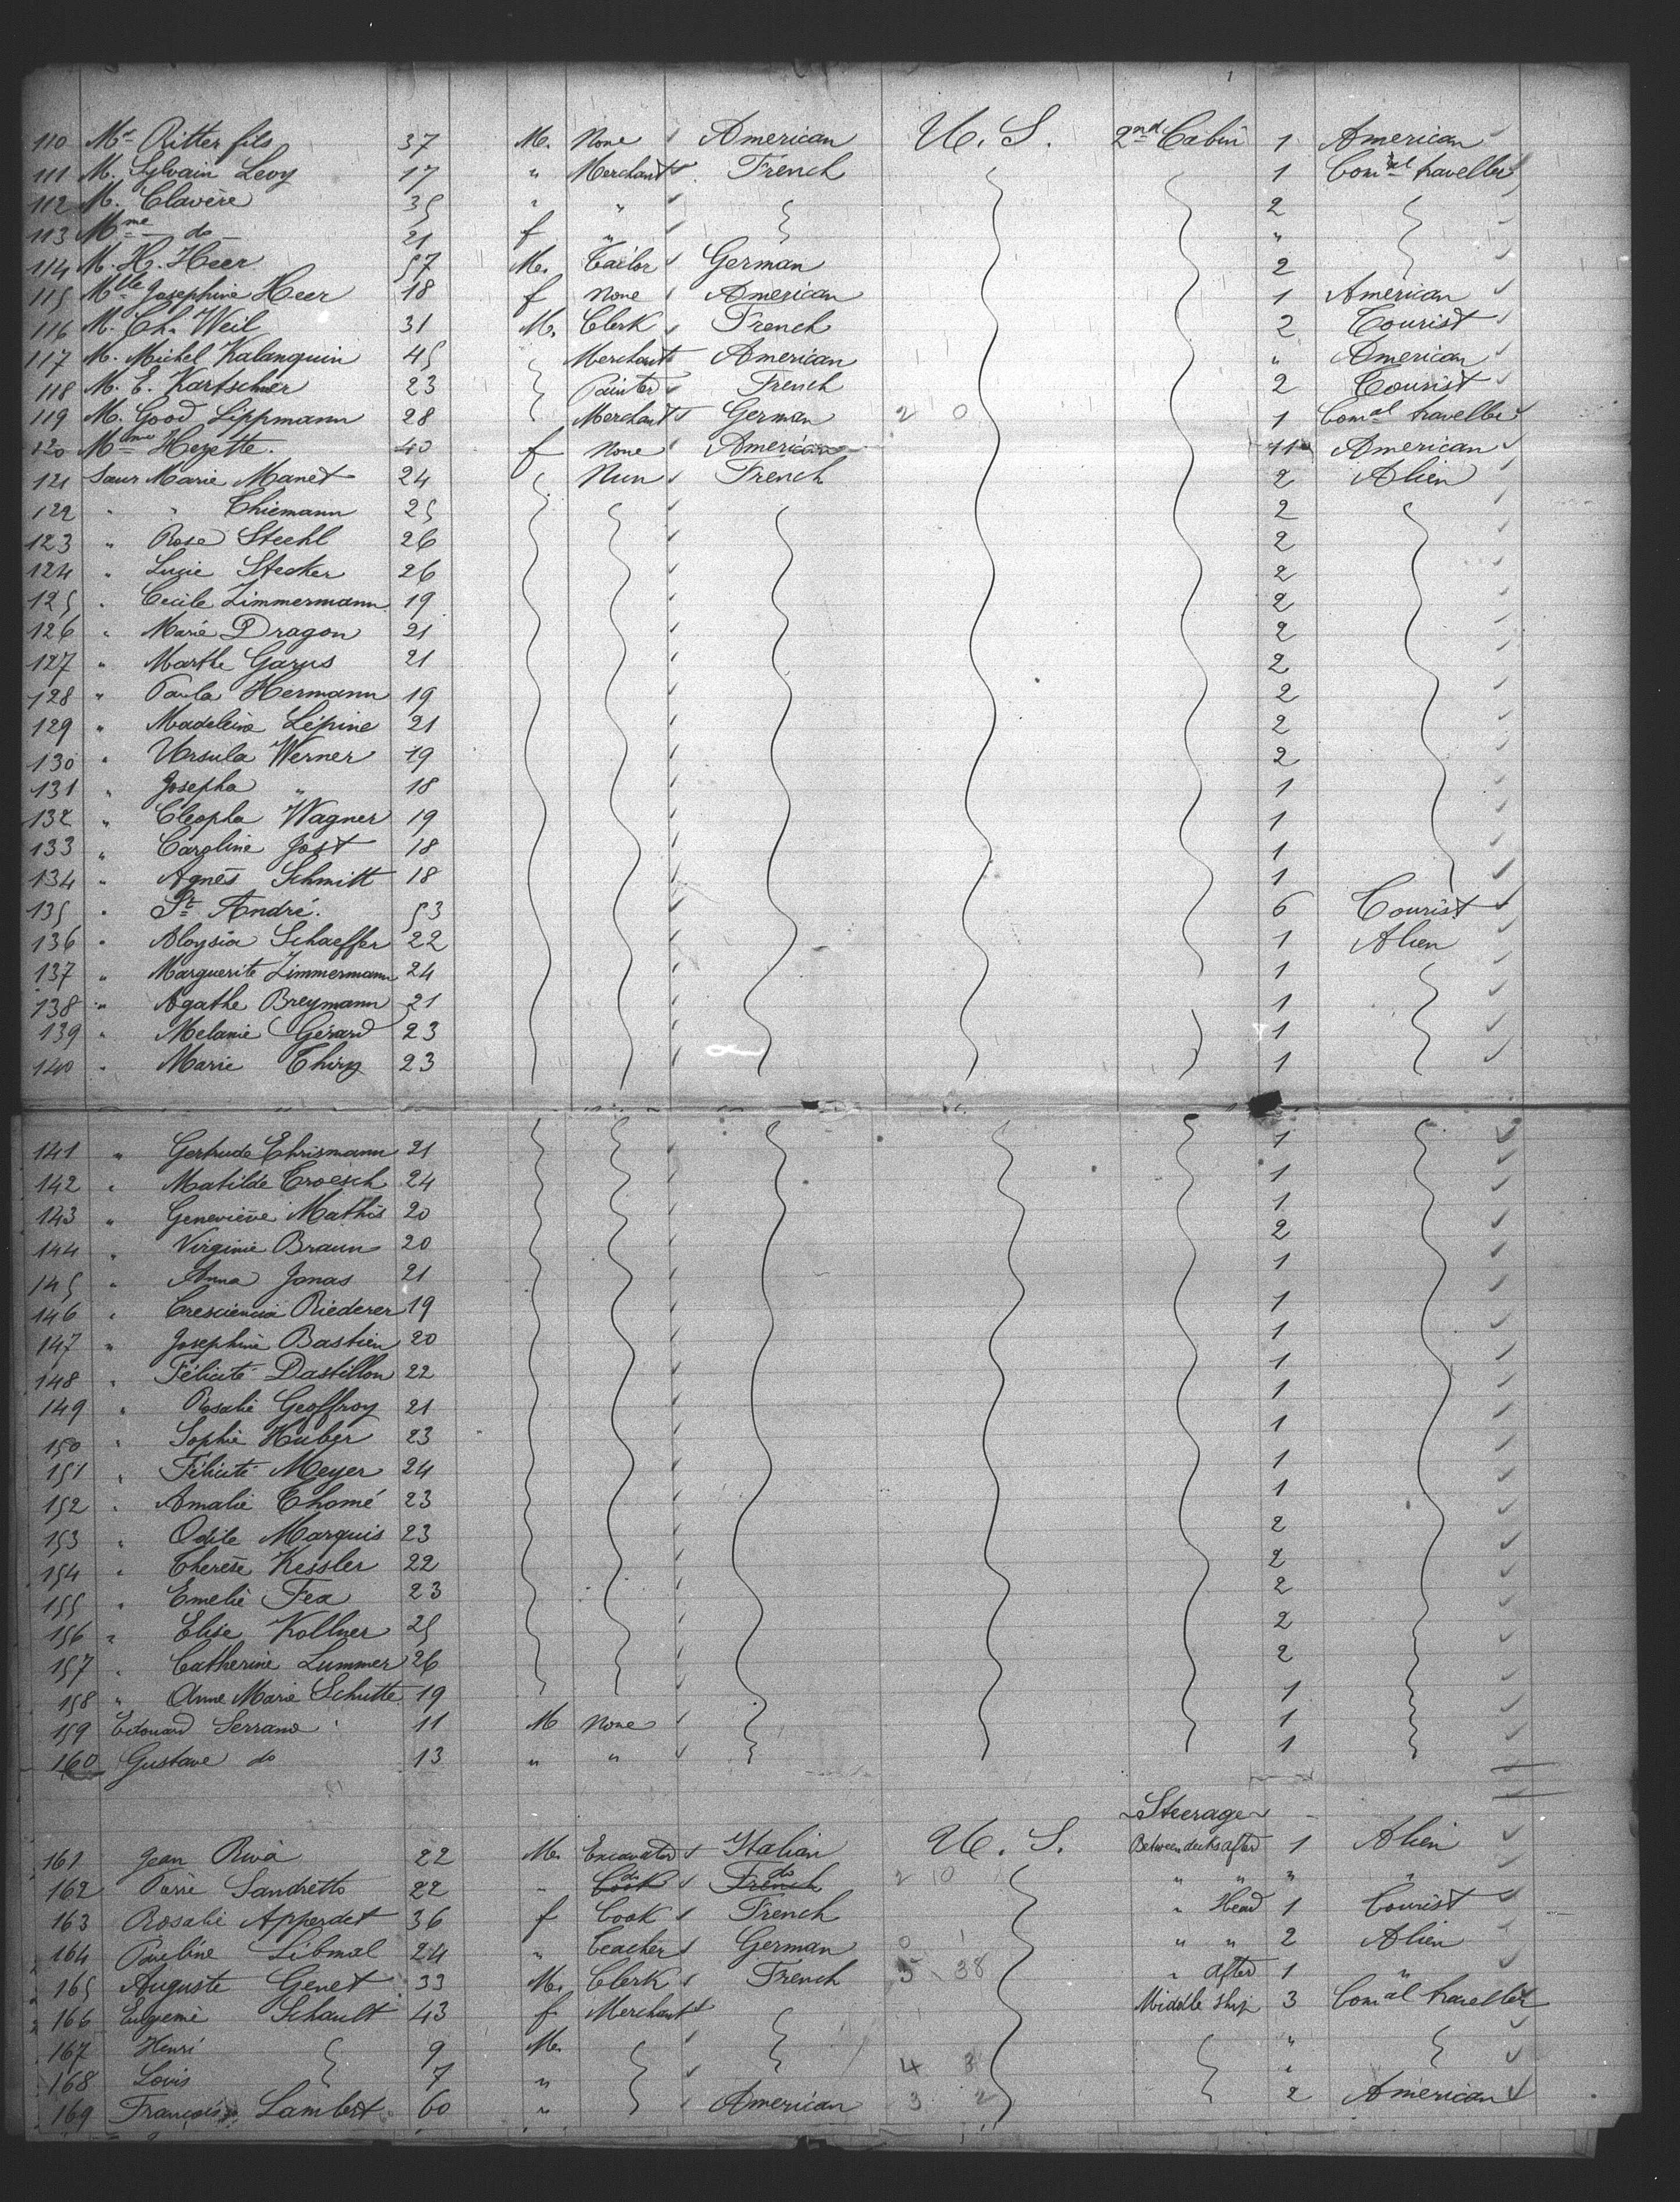 110 Mr Ritter fils 37 M. None American U. S. 2nd Cabin 1 American
111 M. Sylvain Levy 17 " Merchant French 1 Comal traveller
112 M. Clavère 35 " " 2
113 Mme do 21 f " "
114 M. H. Heer 57 M. Tailor German 2
115 Mlle Josephine Heer 18 f None American 1 American
116 M. Ch. Weil 31 M. Clerk French 2 Tourist
117 M. Michel Kalanquin 45 Merchant American " American
118 M. E. Kartschner 23 Painter French 2 Tourist
119 M. Good Lippmann 28 Merchant German 2 0 1 Comal traveller
120 Mme Hezette. 40 f None American 11 American
121 Sœur Marie Manet 24 Nun French 2 Alien
122 " " Thiemann 25 2
123 " Rose Stechl 26 2
124 " Lucie Stecker 26 2
125 " Cecile Zimmermann 19 2
126 " Marie Dragon 21 2
127 " Marthe Garus 21 2
128 " Paula Hermann 19 2
129 " Madeleine Lépine 21 2
130 " Ursula Werner 19 2
131 " Josepha " 18 1
132 " Cleopha Wagner 19 1
133 " Caroline Jost 18 1
134 " Agnès Schmitt 18 1
135 " St André. 53 6 Tourist
136 " Aloysia Schaeffer 22 1 Alien
137 " Marguerite Zimmermann 24 1
138 " Agathe Breymann 21 1
139 " Melanie Gérard 23 1
140 " Marie Thiry 23 1
141 " Gertrude Ehrismann 21 1
142 " Matilde Troesch 24 1
143 " Geneviève Mathis 20 1
144 " Virginie Braun 20 2
145 " Anna Jonas 21 1
146 " Cresciencia Riederer 19 1
147 " Josephine Bastien 20 1
148 " Félicité Dastillon 22 1
149 " Rosalie Geoffroy 21 1
150 " Sophie Huber 23 1
151 " Félicité Meyer 24 1
152 " Amalie Thomé 23 1
153 " Odile Marquis 23 2
154 " Therèse Kessler 22 2
155 " Emelie Fex 23 2
156 " Elise Kollner 25 2
157 " Catherine Lummer 26 2
158 " Anne Marie Schutte 19 1
159 Edouard Serrano 11 M None 1
160 Gustave do 13 " " 1
Steerage
161 Jean Riva 22 M. Excavator Italian U. S. Between decks after 1 Alien
162 Pierre Sandretto 22 " Cook do French do 2 10 " " " "
163 Rosalie Apperdet 36 f Cook French " Head 1 Tourist
164 Pauline Libmal 24 " Teacher German 0 1 " " 2 Alien
165 Auguste Genet 33 M. Clerk French 5 38 " after 1 "
166 Eugenie Schault 43 f Merchant Middle ship 3 Comal traveller
167 Henri 9 M. "
168 Louis 7 " 4 3 "
169 François Lambert 60 " American 3 2 2 American